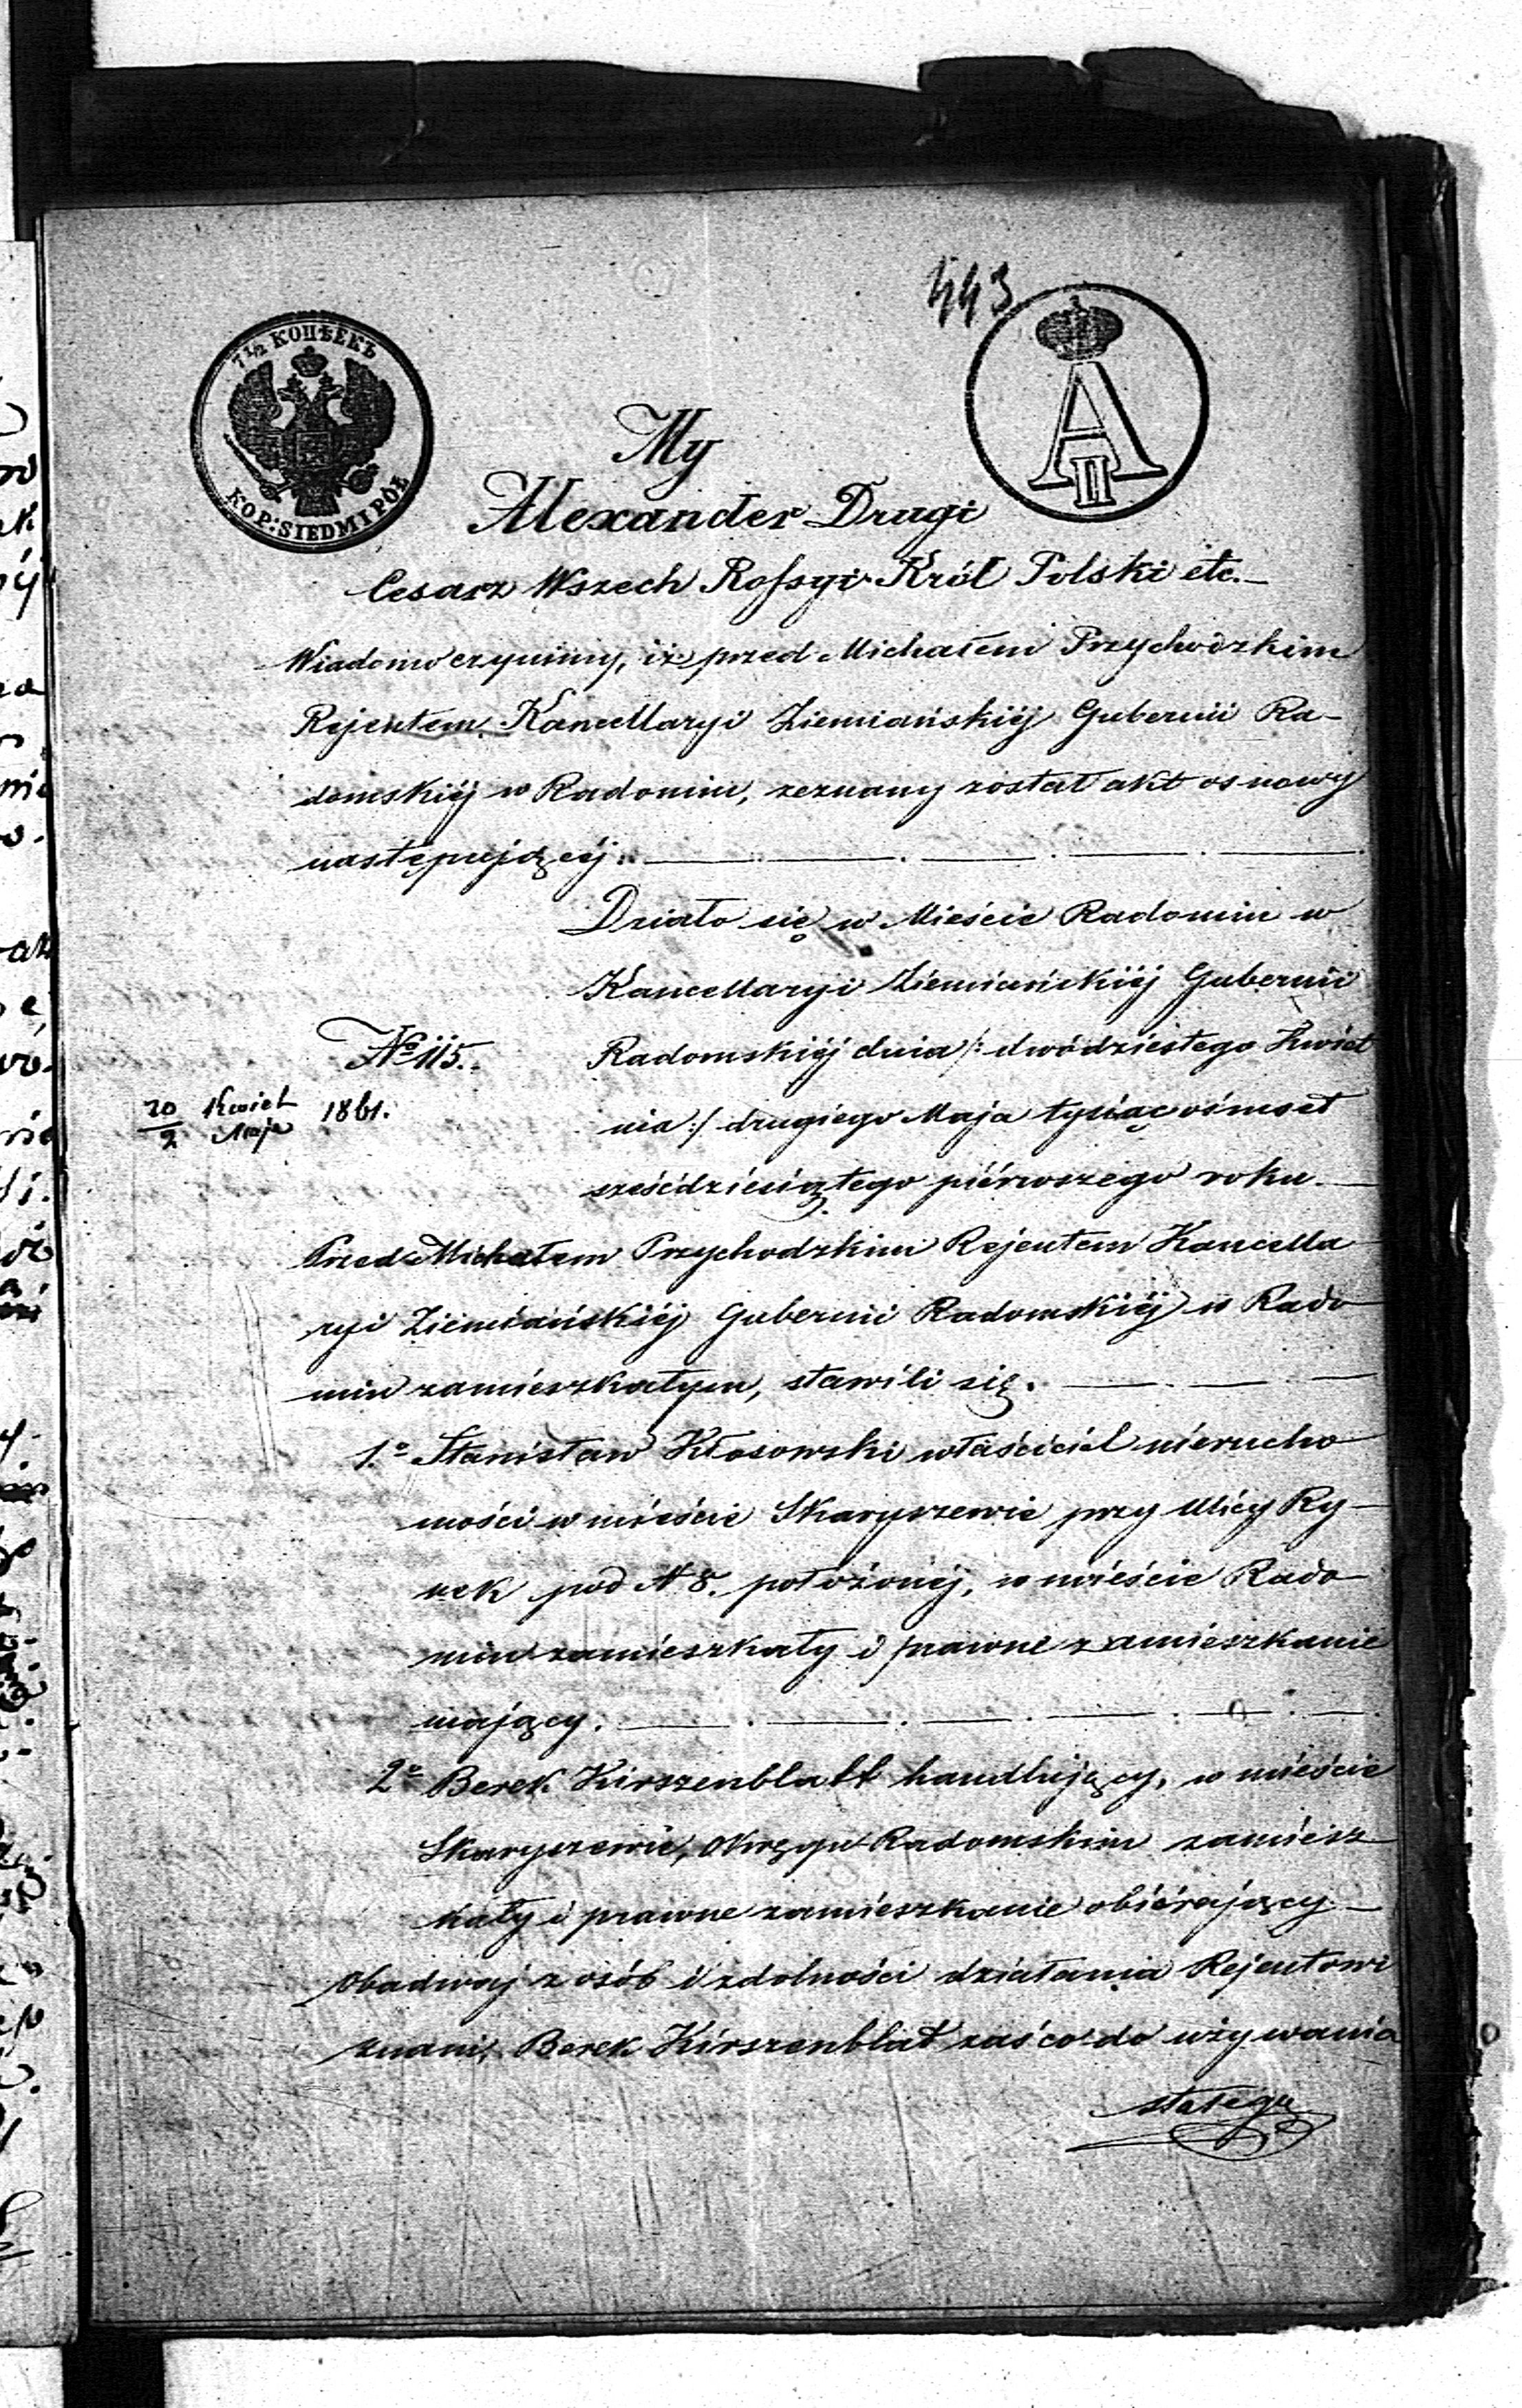 443
7½ КОПѢЕКЪ
KOP: SIEDM I PÓŁ
A II
My
Alexander Drugi
Cesarz Wszech Rossyi Król Polski etc.
Wiadomo czynimy, iż przed Michałem Przychodzkim
Rejentem Kancellaryi Ziemiańskiéj Gubernii Ra-
domskiéj w Radomiu, zeznany został akt osnowy
następującéj.
Działo się w Mieście Radomiu w
Kancellaryi Ziemiańskiéj Gubernii
Radomskiéj dnia /: dwódziestego Kwiet
nia :/ drugiego Maja tysiąc ośmset
sześćdziesiątego piérwszego roku.
No 115.
20/2 Kwiet/Maja 1861.
Przed Michałem Przychodzkim Rejentem Kancella
ryi Ziemiańskiéj Gubernii Radomskiéj w Rado
miu zamieszkałym, stawili się.
1.o Stanisław Kłosowski właściciel nierucho
mości w mieście Skaryszewie przy Ulicy Ry-
nek pod N 8. położonéj, w mieście Rado
miu zamieszkały i prawne zamieszkanie
mający.
2o Berek Kirszenblatt handlujący, w mieście
Skaryszewie, Okręgu Radomskim zamiesz
kały i prawne zamieszkanie obiérający
Obadwaj z osób i zdolności działania Rejentowi
znani, Berek Kirszenblat zaś co do używania
stałego